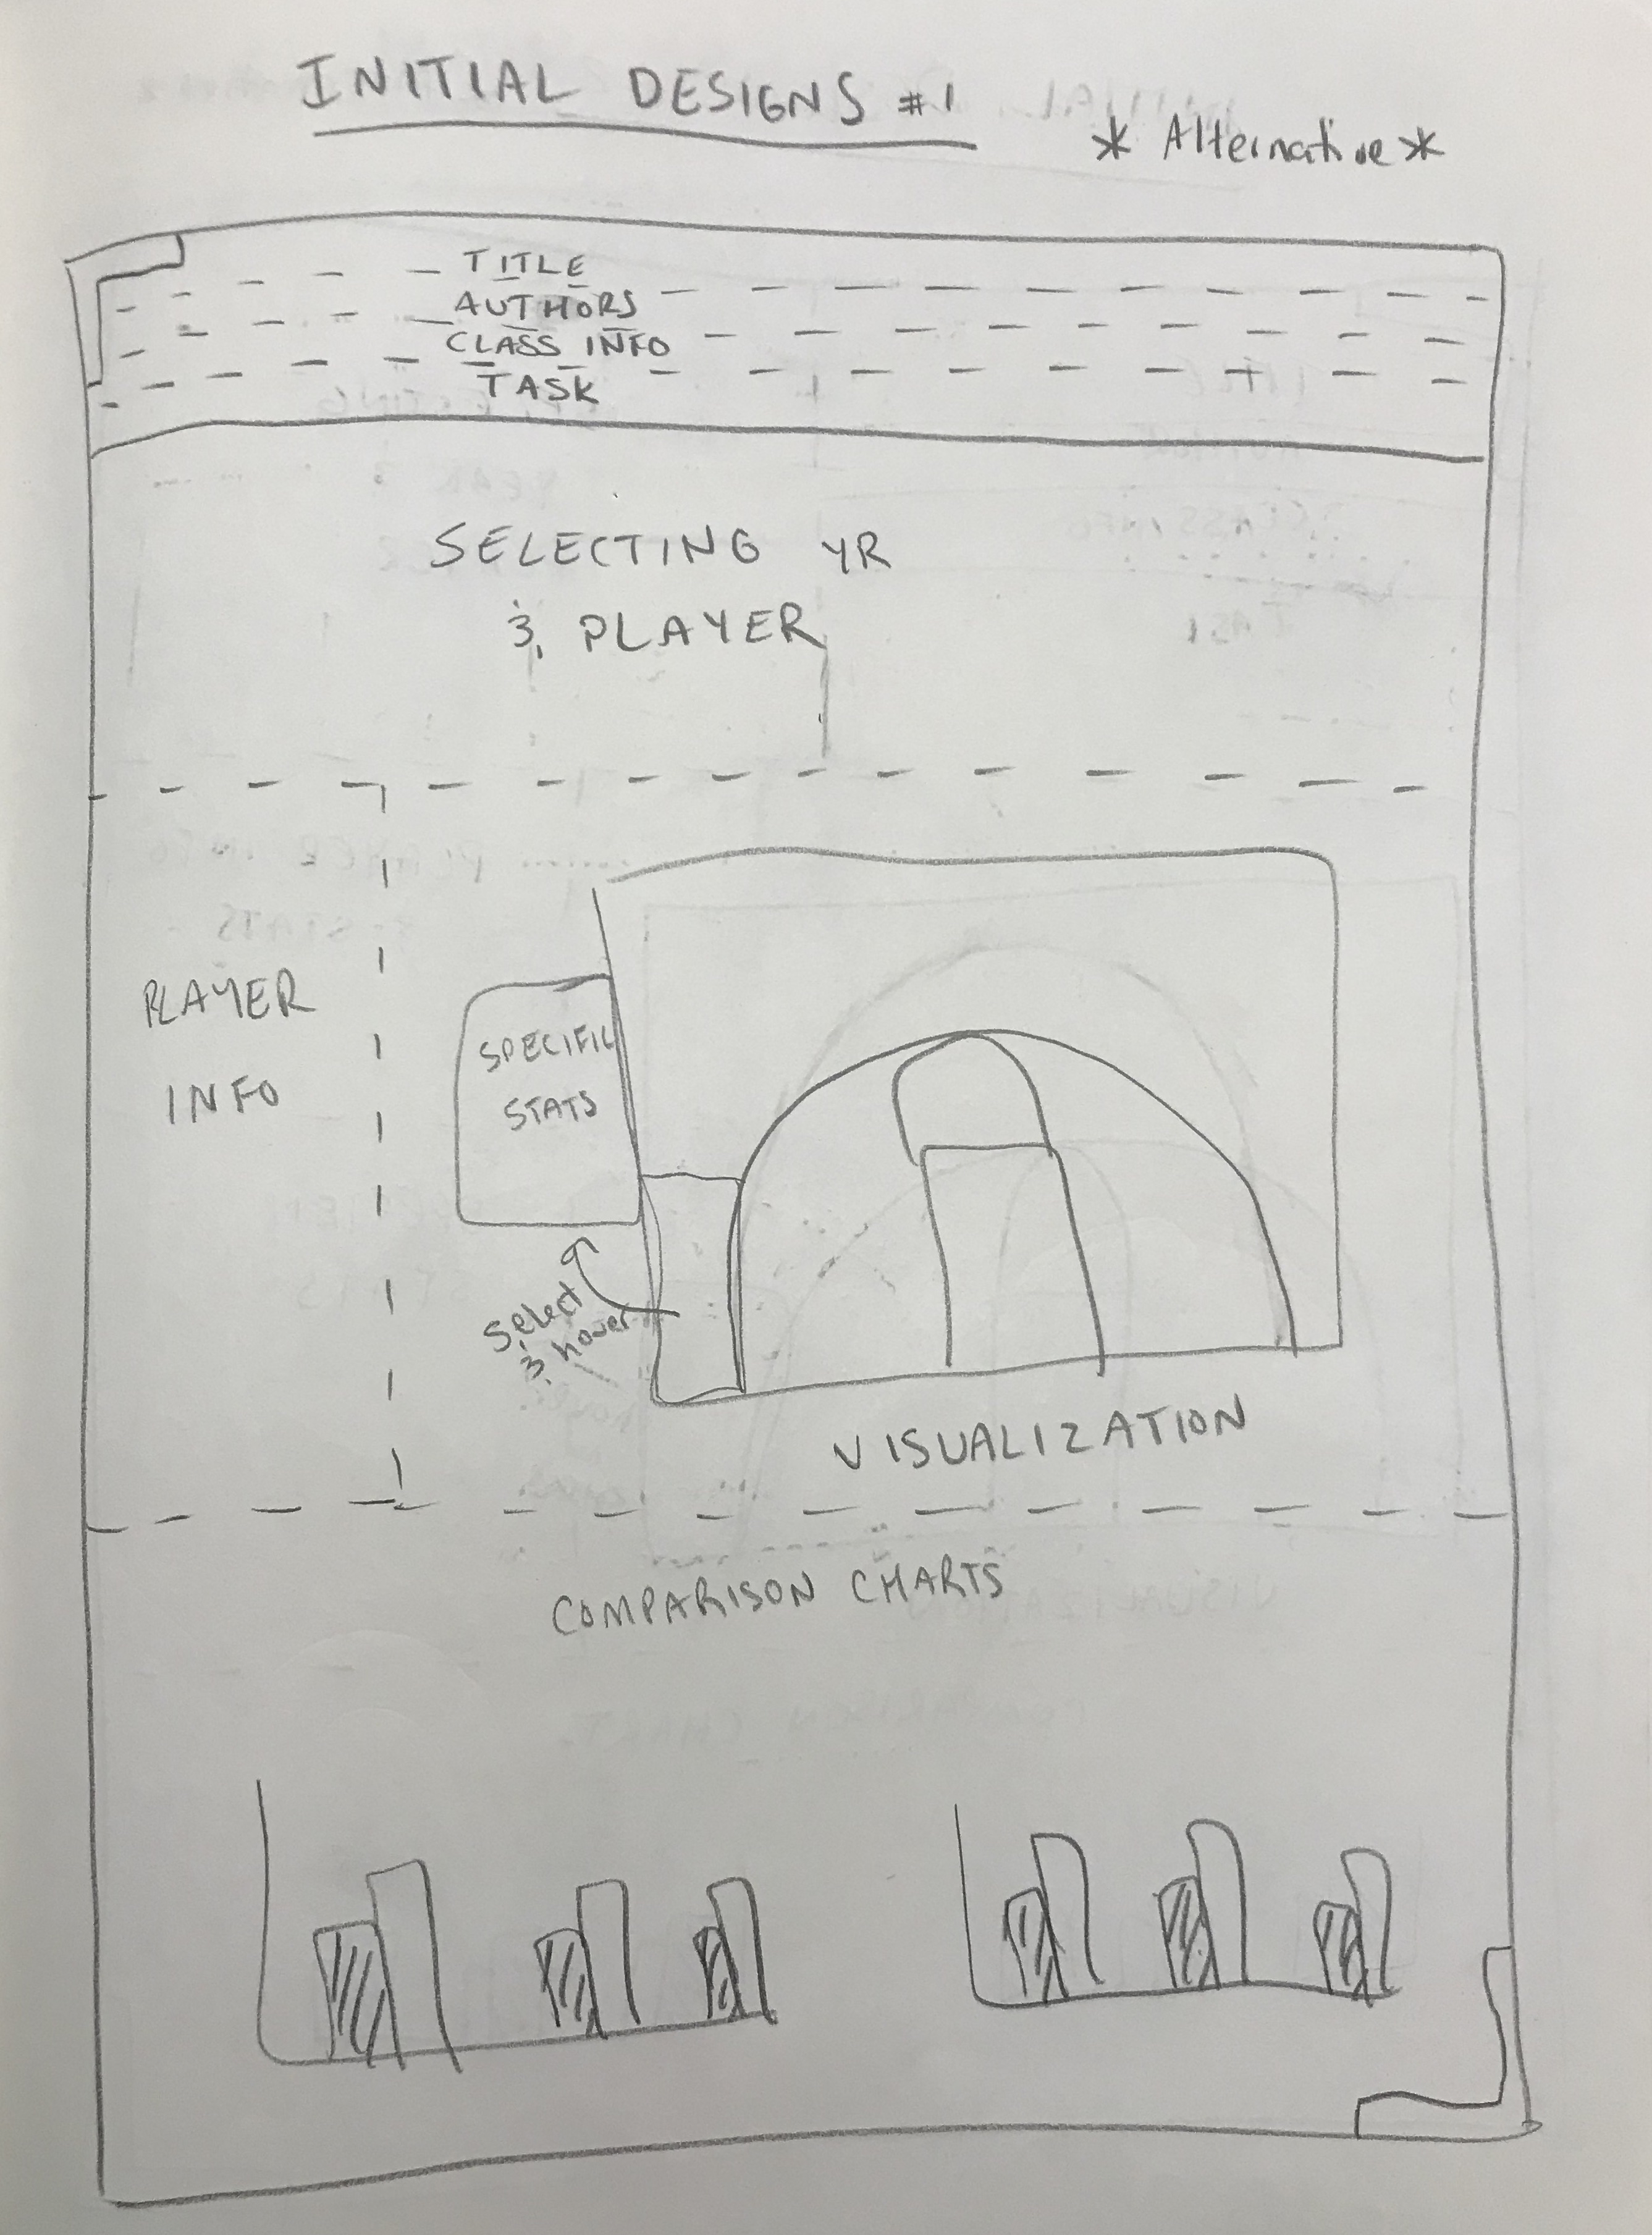 INITIAL DESIGNS #1
* Alternative *
TITLE
AUTHORS
CLASS INFO
TASK
SELECTING YR
& PLAYER
PLAYER
INFO
SPECIFIC
STATS
Select
& hover
VISUALIZATION
COMPARISON CHARTS